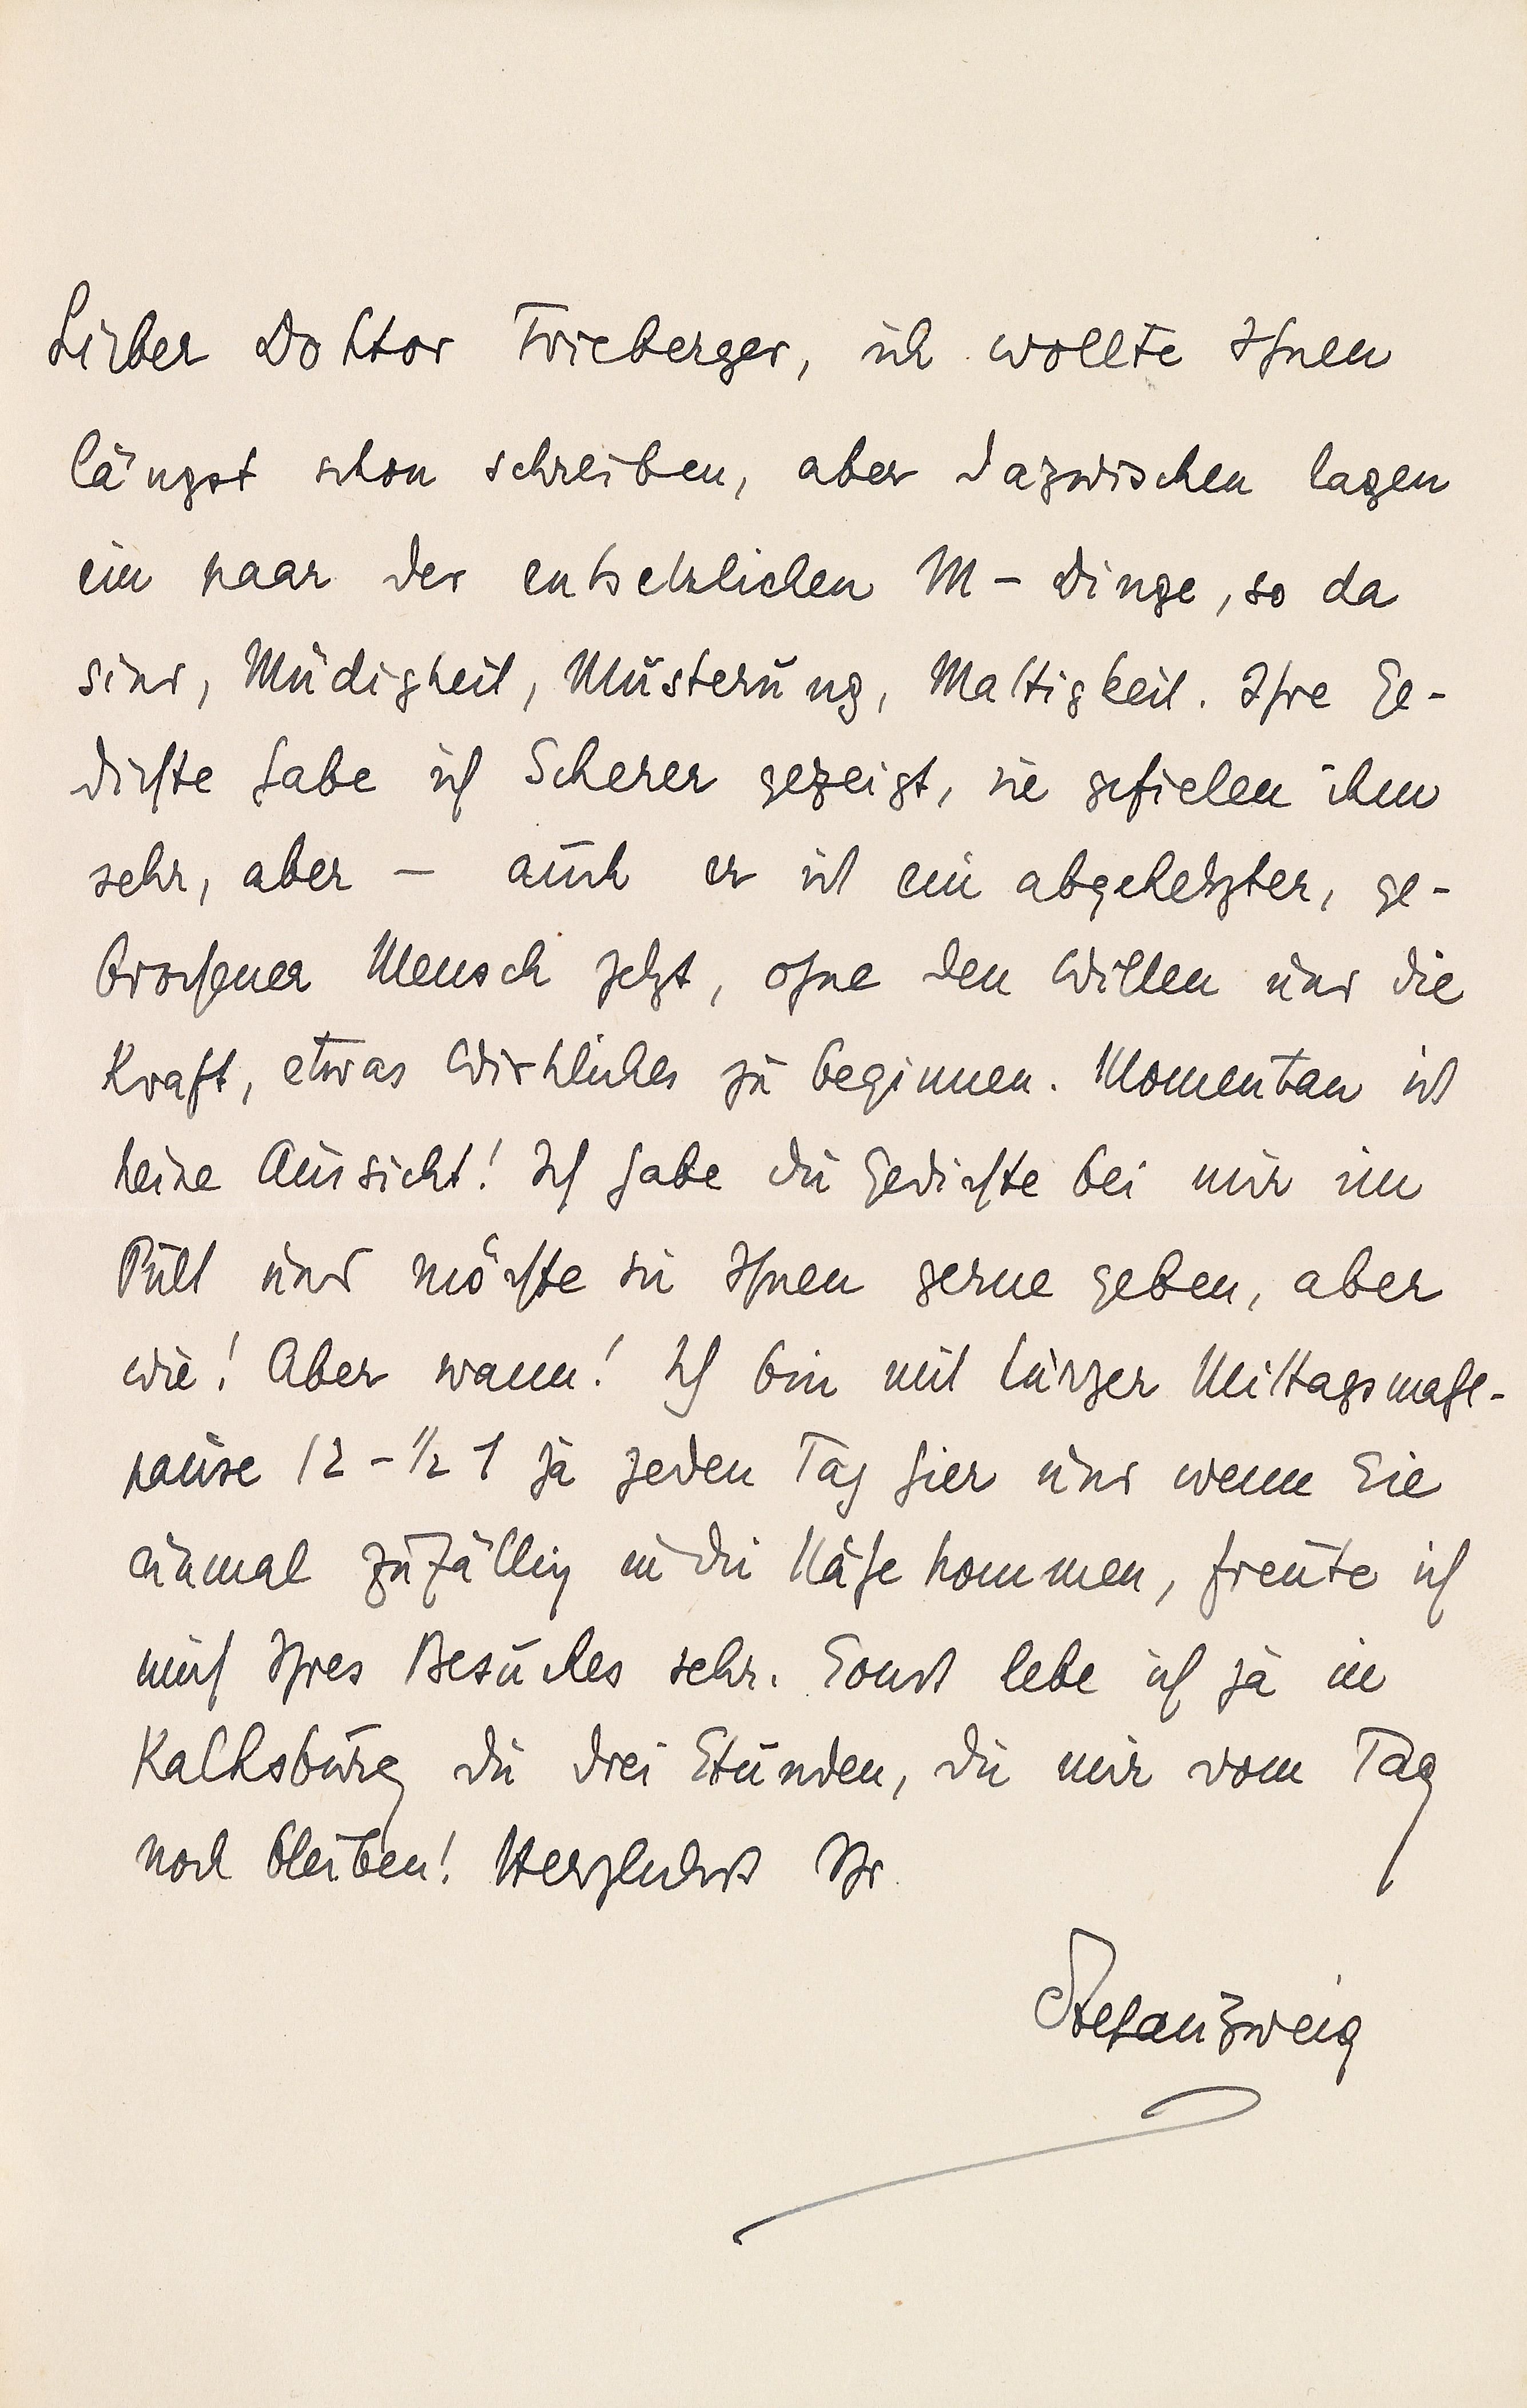 Lieber Doktor Frieberger, ich wollte Ihnen
längst schon schreiben, aber dazwischen lagen
ein paar der entsetzlichen M - Dinge, so da
sind, Müdigkeit, Musterung, Mattigkeit. Ihre Ge-
dichte habe ich Scherer gezeigt, sie gefielen ihm
sehr, aber – auch er ist ein abgehetzter, ge-
brochener Mensch jetzt, ohne den Willen und die
Kraft, etwas Wirkliches zu beginnen. Momentan ist
keine Aussicht! Ich habe die Gedichte bei mir im
Pult und möchte sie Ihnen gerne geben, aber
wie! Aber wann! Ich bin mit kurzer Mittagsmahl-
pause 12 - ½ 1 ja jeden Tag hier und wenn Sie
einmal zufällig in die Nähe kommen, freute ich
mich Ihres Besuches sehr. Sonst lebe ich ja in
Kalksburg die drei Stunden, die mir vom Tag
noch bleiben! Herzlichst Ihr
Stefan Zweig